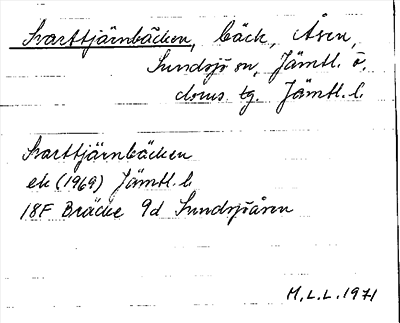 Svarttjärnbäcken, bäck, Åsen,
Sundsjö sn, Jämtl. ö.
doms tg. Jämtl. l.
Svarttjärnbäcken
ek (1969) Jämtl. l
18F Bräcke 9d Sundsjöåsen
M.L.L. 1971